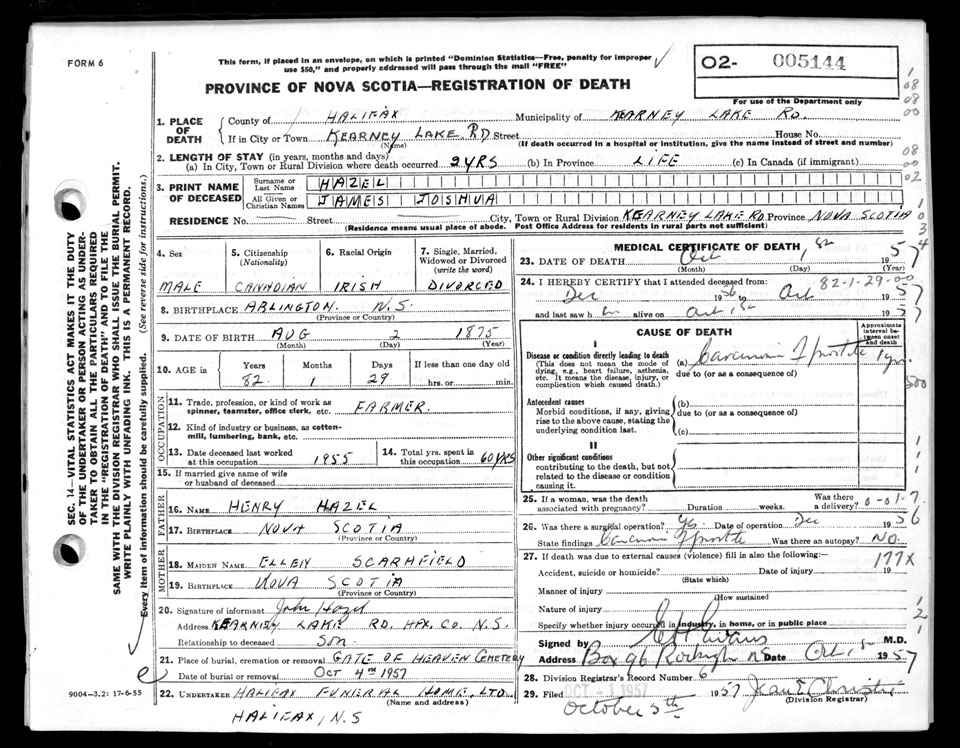 FORM 6
This form, if placed in an envelope, on which is printed "Dominion Statistics—Free, penalty for improper
use $50," and properly addressed will pass through the mail "FREE"
02- 005144
For use of the Department only
PROVINCE OF NOVA SCOTIA—REGISTRATION OF DEATH
1. PLACE OF DEATH County of HALIFAX Municipality of KEARNEY LAKE RD.
If in City or Town KEARNEY LAKE. RD Street House No.
(Name) (If death occurred in a hospital or institution, give the name instead of street and number)
2. LENGTH OF STAY (in years, months and days)
(a) In City, Town or Rural Division where death occurred 2 YRS (b) In Province LIFE (c) In Canada (if immigrant)
3. PRINT NAME OF DECEASED Surname or Last Name HAZEL
All Given or Christian Names JAMES JOSHUA
RESIDENCE No. Street City, Town or Rural Division KEARNEY LAKE RD. Province NOVA SCOTIA
(Residence means usual place of abode. Post Office Address for residents in rural parts not sufficient)
4. Sex MALE
5. Citizenship (Nationality) CANADIAN
6. Racial Origin IRISH
7. Single, Married, Widowed or Divorced (write the word) DIVORCED
8. BIRTHPLACE ARLINGTON. N.S.
(Province or Country)
9. DATE OF BIRTH AUG 2 1875
(Month) (Day) (Year)
10. AGE in Years Months Days If less than one day old
82. 1 29 hrs. or min.
OCCUPATION
11. Trade, profession, or kind of work as
spinner, teamster, office clerk, etc. FARMER.
12. Kind of industry or business, as cotton-
mill, lumbering, bank, etc.
13. Date deceased last worked at this occupation 1955 14. Total yrs. spent in this occupation 60 YRS
15. If married give name of wife
or husband of deceased
FATHER
16. Name HENRY HAZEL
17. Birthplace NOVA SCOTIA
(Province or Country)
MOTHER
18. Maiden Name ELLEN SCARHFIELD
19. Birthplace NOVA SCOTIA
(Province or Country)
20. Signature of informant John Hazel
Address KEARNEY LAKE RD. HFX. CO. N.S.
Relationship to deceased SON.
21. Place of burial, cremation or removal GATE OF HEAVEN CEMETERY
Date of burial or removal OCT 4TH 1957
22. UNDERTAKER HALIFAX FUNERAL HOME. LTD.
(Name and address)
HALIFAX, N.S
9004-3.2: 17-6-55
MEDICAL CERTIFICATE OF DEATH
23. DATE OF DEATH Oct 1st 1957
(Month) (Day) (Year)
24. I HEREBY CERTIFY that I attended deceased from: 82-1-29-00
Dec 1956 to Oct 1957
and last saw h im alive on Oct 1st 1957
CAUSE OF DEATH
Approximate interval between onset and death
I
Disease or condition directly leading to death
(This does not mean the mode of dying, e.g., heart failure, asthenia, etc. It means the disease, injury, or complication which caused death.)
(a) Carcinoma of prostate 1 yr.
due to (or as a consequence of)
Antecedent causes
Morbid conditions, if any, giving rise to the above cause, stating the underlying condition last.
(b)
due to (or as a consequence of)
(c)
II
Other significant conditions
contributing to the death, but not related to the disease or condition causing it.
25. If a woman, was the death associated with pregnancy? Duration weeks. Was there a delivery?
26. Was there a surgical operation? Yes Date of operation Dec 1956
State findings Carcinoma of prostate Was there an autopsy? NO.
27. If death was due to external causes (violence) fill in also the following:— 177X
Accident, suicide or homicide? Date of injury 19
(State which)
Manner of injury
(How sustained
Nature of injury
Specify whether injury occurred in industry, in home, or in public place
Signed by M.D.
Address Box 96 Rockingham NS Date Oct 1st 1957
28. Division Registrar's Record Number 6
29. Filed OCT - 1 1957 1957
October 5th (Division Registrar)
SEC. 14—VITAL STATISTICS ACT MAKES IT THE DUTY
OF THE UNDERTAKER OR PERSON ACTING AS UNDER-
TAKER TO OBTAIN ALL THE PARTICULARS REQUIRED
IN THE "REGISTRATION OF DEATH" AND TO FILE THE
SAME WITH THE DIVISION REGISTRAR WHO SHALL ISSUE THE BURIAL PERMIT.
WRITE PLAINLY WITH UNFADING INK. THIS IS A PERMANENT RECORD.
Every item of information should be carefully supplied. (See reverse side for instructions.)